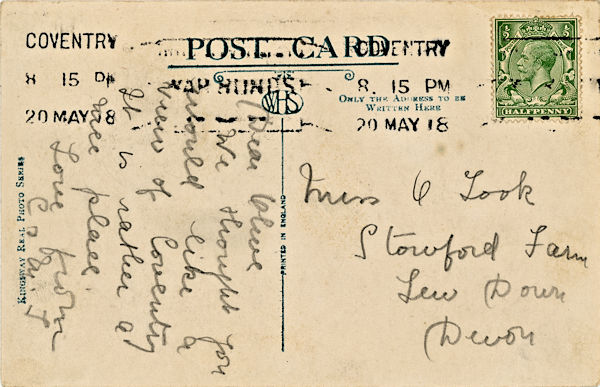 POST CARD
COVENTRY
8 15 PM
20 MAY 18
COVENTRY
8. 15 PM
20 MAY 18
WAR BONDS
WHS
ONLY THE ADDRESS TO BE
WRITTEN HERE
HALFPENNY
KINGSWAY REAL PHOTO SERIES
PRINTED IN ENGLAND
Dear Olive
We thought you
would like a
view of Coventry
It is rather a
nice place.
Love from
Miss O Took
Stowford Farm
Lew Down
Devon